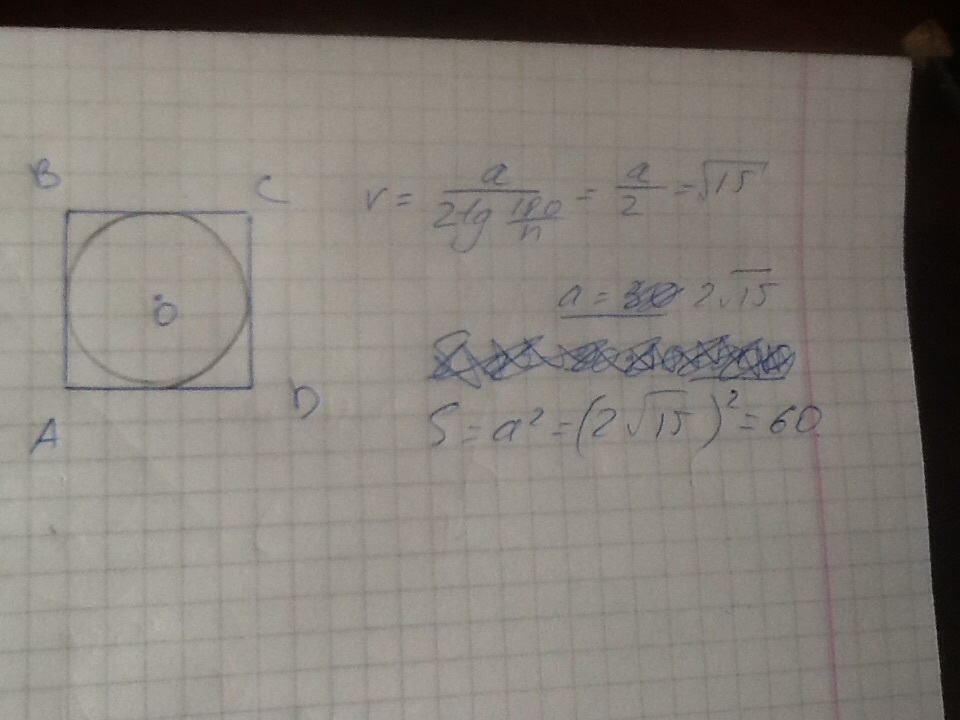 B C
r = a / (2tg 180/n) = a/2 = √15
O
a = 2√15
D
S = a² = (2√15)² = 60
A